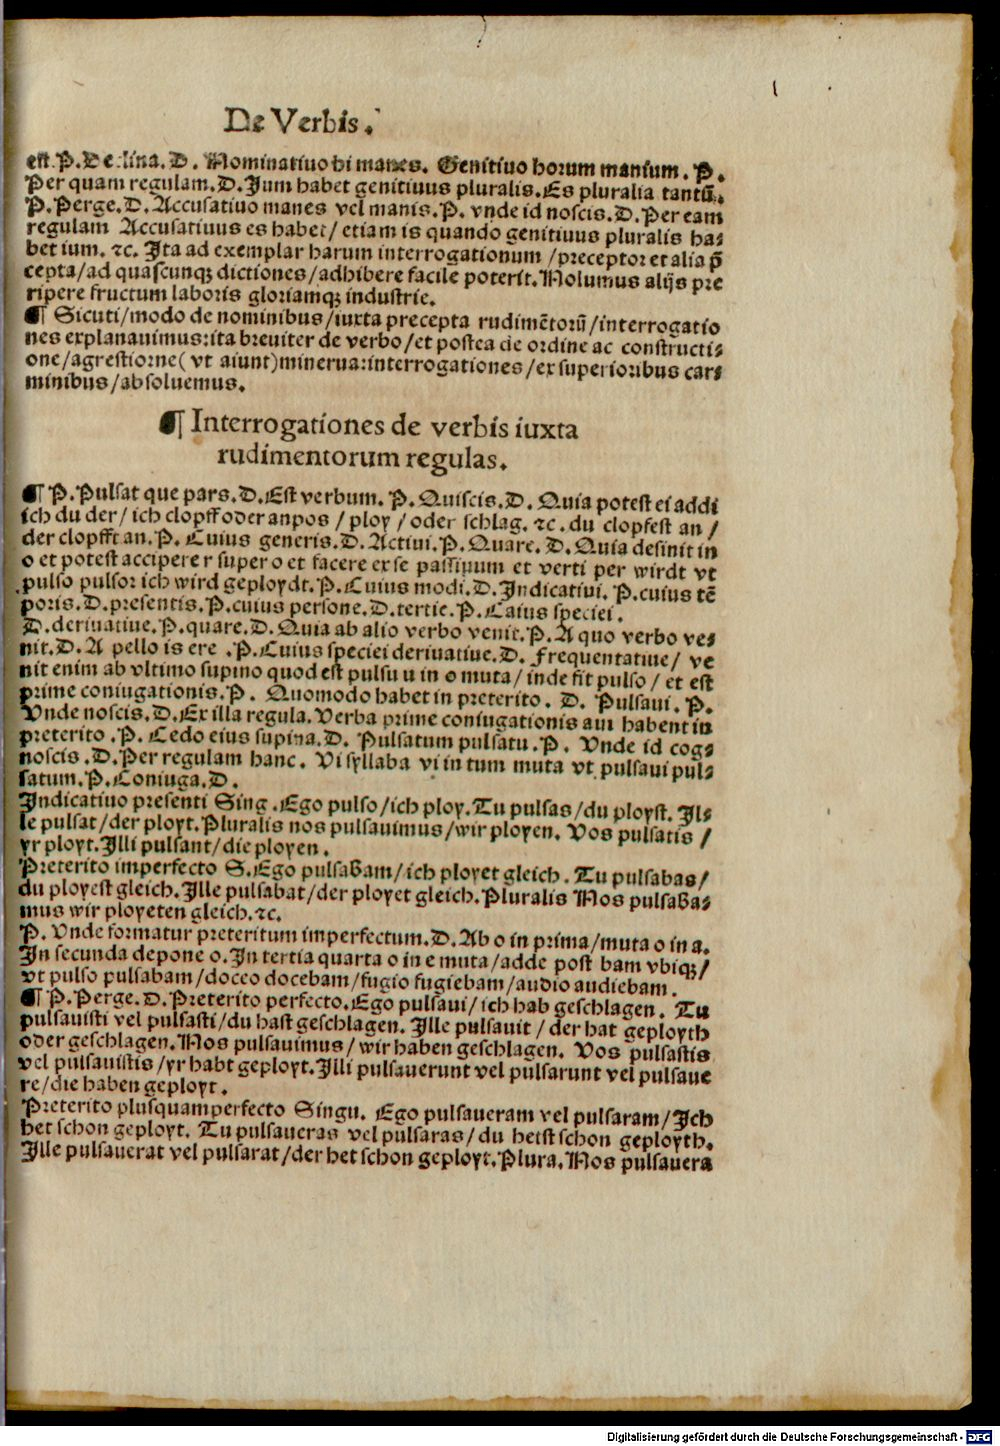 De Verbis.
est.P.Declina.D. Nominatiuo hi manes. Genitiuo horum manium. P.
Per quam regulam.D.Ium habet genitiuus pluralis.Es pluralia tantū.
P.Perge.D.Accusatiuo manes vel manis.P. vnde id noscis.D.Per eam
regulam Accusatiuus es habet/ etiam is quando genitiuus pluralis ha-
bet ium. ⁊c. Ita ad exemplar harum interrogationum/preceptor et alia p̄
cepta/ad quascunqꝫ dictiones/adhibere facile poterit.Nolumus alijs pre
ripere fructum laboris gloriamqꝫ industrie.
¶ Sicuti/modo de nominibus/iuxta precepta rudimētorū/interrogatio
nes explanauimus:ita breuiter de verbo/et postea de ordine ac constructi-
one/agrestiorne( vt aiunt)minerua:interrogationes/ex superioribus car-
minibus/absoluemus.
¶ Interrogationes de verbis iuxta
rudimentorum regulas.
¶ P.Pulsat que pars.D.Est verbum. P. Quiscis.D. Quia potest ei addi
ich du der/ ich clopff oder anpos / ploy / oder schlag. ⁊c. du clopfest an /
der clopfft an.P. Cuius generis.D.Actiui.P.Quare. D.Quia desinit in
o et potest accipere r super o et facere ex se passiuum et verti per wirdt vt
pulso pulsor ich wird geploydt.P.Cuius modi.D.Indicatiui. P.cuius tē
poris.D.presentis.P.cuius persone.D.tertie.P.Caius speciei.
D.deriuatiue.P.quare.D.Quia ab alio verbo venit.P.A quo verbo ve-
nit.D.A pello is ere .P.Cuius speciei deriuatiue.D. Frequentatiue/ ve
nit enim ab vltimo supino quod est pulsu u in o muta/ inde fit pulso/ et est
prime coniugationis.P. Quomodo habet in preterito. D. Pulsaui. P.
Vnde noscis.D.Ex illa regula.Verba prime coniugationis aui habent in
preterito .P. Cedo eius supina.D. Pulsatum pulsatu.P. Vnde id cog-
noscis.D.Per regulam hanc. Vi syllaba vi in tum muta vt pulsaui pul-
satum.P.Coniuga.D.
Indicatiuo presenti Sing.Ego pulso/ich ploy.Tu pulsas/du ployst.Il-
le pulsat/der ployt.Pluralis nos pulsauimus/wir ployen. Vos pulsatis /
yr ployt.Illi pulsant/die ployen.
Preterito imperfecto S.Ego pulsabam/ich ployet gleich. Tu pulsabas/
du ployest gleich.Ille pulsabat/der ployet gleich.Pluralis Nos pulsaba-
mus wir ployeten gleich.⁊c.
P. Vnde formatur preteritum imperfectum.D.Ab o in prima/muta o in a.
In secunda depone o.In tertia quarta o in e muta/adde post bam vbiqꝫ/
vt pulso pulsabam/doceo docebam/fugio fugiebam/audio audiebam.
¶ P.Perge.D.Preterito perfecto.Ego pulsaui/ich hab geschlagen. Tu
pulsauisti vel pulsasti/du hast geschlagen. Ille pulsauit / der hat geployth
oder geschlagen.Nos pulsauimus/wir haben geschlagen. Vos pulsastis
vel pulsauistis/yr habt geployt.Illi pulsauerunt vel pulsarunt vel pulsaue
re/die haben geployt.
Preterito plusquamperfecto Singu. Ego pulsaueram vel pulsaram/Ich
het schon geployt. Tu pulsaueras vel pulsaras/du hetst schon geployth.
Ille pulsauerat vel pulsarat/der het schon geployt.Plura.Nos pulsauera
Digitalisierung gefördert durch die Deutsche Forschungsgemeinschaft - DFG